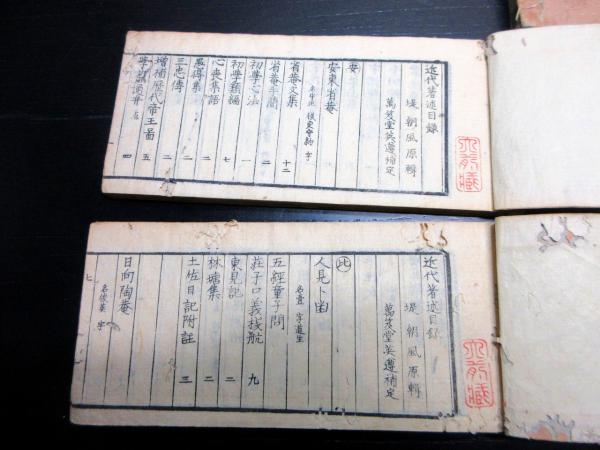 近代著述目録
堤朝風原輯
萬笈堂英遵補定
安
安東省菴
省菴文集 十二
省菴手簡 二
初學心法 一
初學類編 七
心喪集語 二
三忠傳 二
増補歴代帝王圖 五
四
近代著述目録
堤朝風原輯
萬笈堂英遵補定
比
人見卜幽
名壹 字道生
五經童子問
莊子口義棧航 九
東見記 二
林塘集 二
土佐日記附註 三
日向陶菴
七